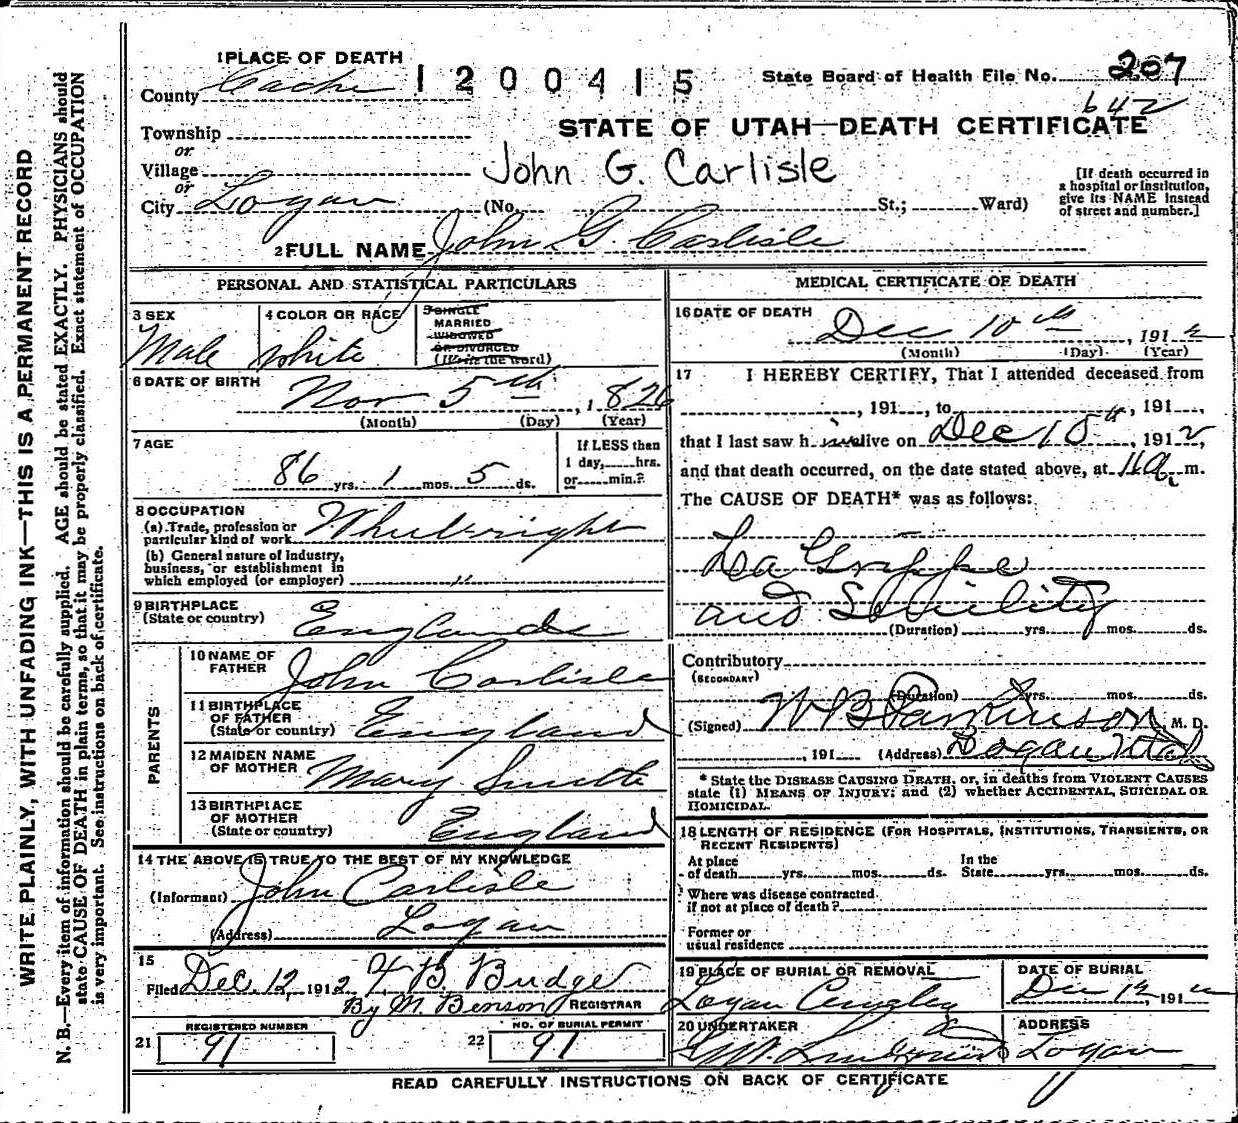 WRITE PLAINLY, WITH UNFADING INK—THIS IS A PERMANENT RECORD
N. B.—Every item of information should be carefully supplied. AGE should be stated EXACTLY. PHYSICIANS should
state CAUSE OF DEATH in plain terms, so that it may be properly classified. Exact statement of OCCUPATION
is very important. See instructions on back of certificate.
1 PLACE OF DEATH
County Cache
1200415
State Board of Health File No. 207
642
Township
or
Village
or
City Logan
STATE OF UTAH—DEATH CERTIFICATE
John G. Carlisle
(No. , St.; Ward)
[If death occurred in
a hospital or institution,
give its NAME instead
of street and number.]
2 FULL NAME John G. Carlisle
PERSONAL AND STATISTICAL PARTICULARS
3 SEX
Male
4 COLOR OR RACE
White
5 SINGLE
MARRIED
WIDOWED
OR DIVORCED
(Write the word)
6 DATE OF BIRTH
Nov 5th, 1826
(Month) (Day) (Year)
7 AGE
86 yrs. 1 mos. 5 ds.
If LESS than
1 day, hrs.
or min.?
8 OCCUPATION
(a) Trade, profession or
particular kind of work Wheelwright
(b) General nature of industry,
business, or establishment in
which employed (or employer) "
9 BIRTHPLACE
(State or country) England
PARENTS
10 NAME OF
FATHER John Carlisle
11 BIRTHPLACE
OF FATHER
(State or country) England
12 MAIDEN NAME
OF MOTHER Mary Smith
13 BIRTHPLACE
OF MOTHER
(State or country) England
14 THE ABOVE IS TRUE TO THE BEST OF MY KNOWLEDGE
(Informant) John Carlisle
(Address) Logan
15
Filed Dec. 12, 1912 B. Budge
By M. Benson REGISTRAR
21 REGISTERED NUMBER
91
22 NO. OF BURIAL PERMIT
91
MEDICAL CERTIFICATE OF DEATH
16 DATE OF DEATH
Dec 10th, 1912
(Month) (Day) (Year)
17 I HEREBY CERTIFY, That I attended deceased from
, 191 , to , 191 ,
that I last saw h im alive on Dec 10th, 1912,
and that death occurred, on the date stated above, at 11 a. m.
The CAUSE OF DEATH* was as follows:
La Grippe
and Senility
(Duration) yrs. mos. ds.
Contributory
(SECONDARY)
(Duration) yrs. mos. ds.
(Signed) W B Parkinson M. D.
, 191 (Address) Logan Utah
* State the DISEASE CAUSING DEATH, or, in deaths from VIOLENT CAUSES
state (1) MEANS OF INJURY; and (2) whether ACCIDENTAL, SUICIDAL OR
HOMICIDAL.
18 LENGTH OF RESIDENCE (FOR HOSPITALS, INSTITUTIONS, TRANSIENTS, OR
RECENT RESIDENTS)
At place
of death yrs. mos. ds.
In the
State yrs. mos. ds.
Where was disease contracted
if not at place of death?
Former or
usual residence
19 PLACE OF BURIAL OR REMOVAL
Logan
DATE OF BURIAL
191
20 UNDERTAKER
ADDRESS
Logan
READ CAREFULLY INSTRUCTIONS ON BACK OF CERTIFICATE